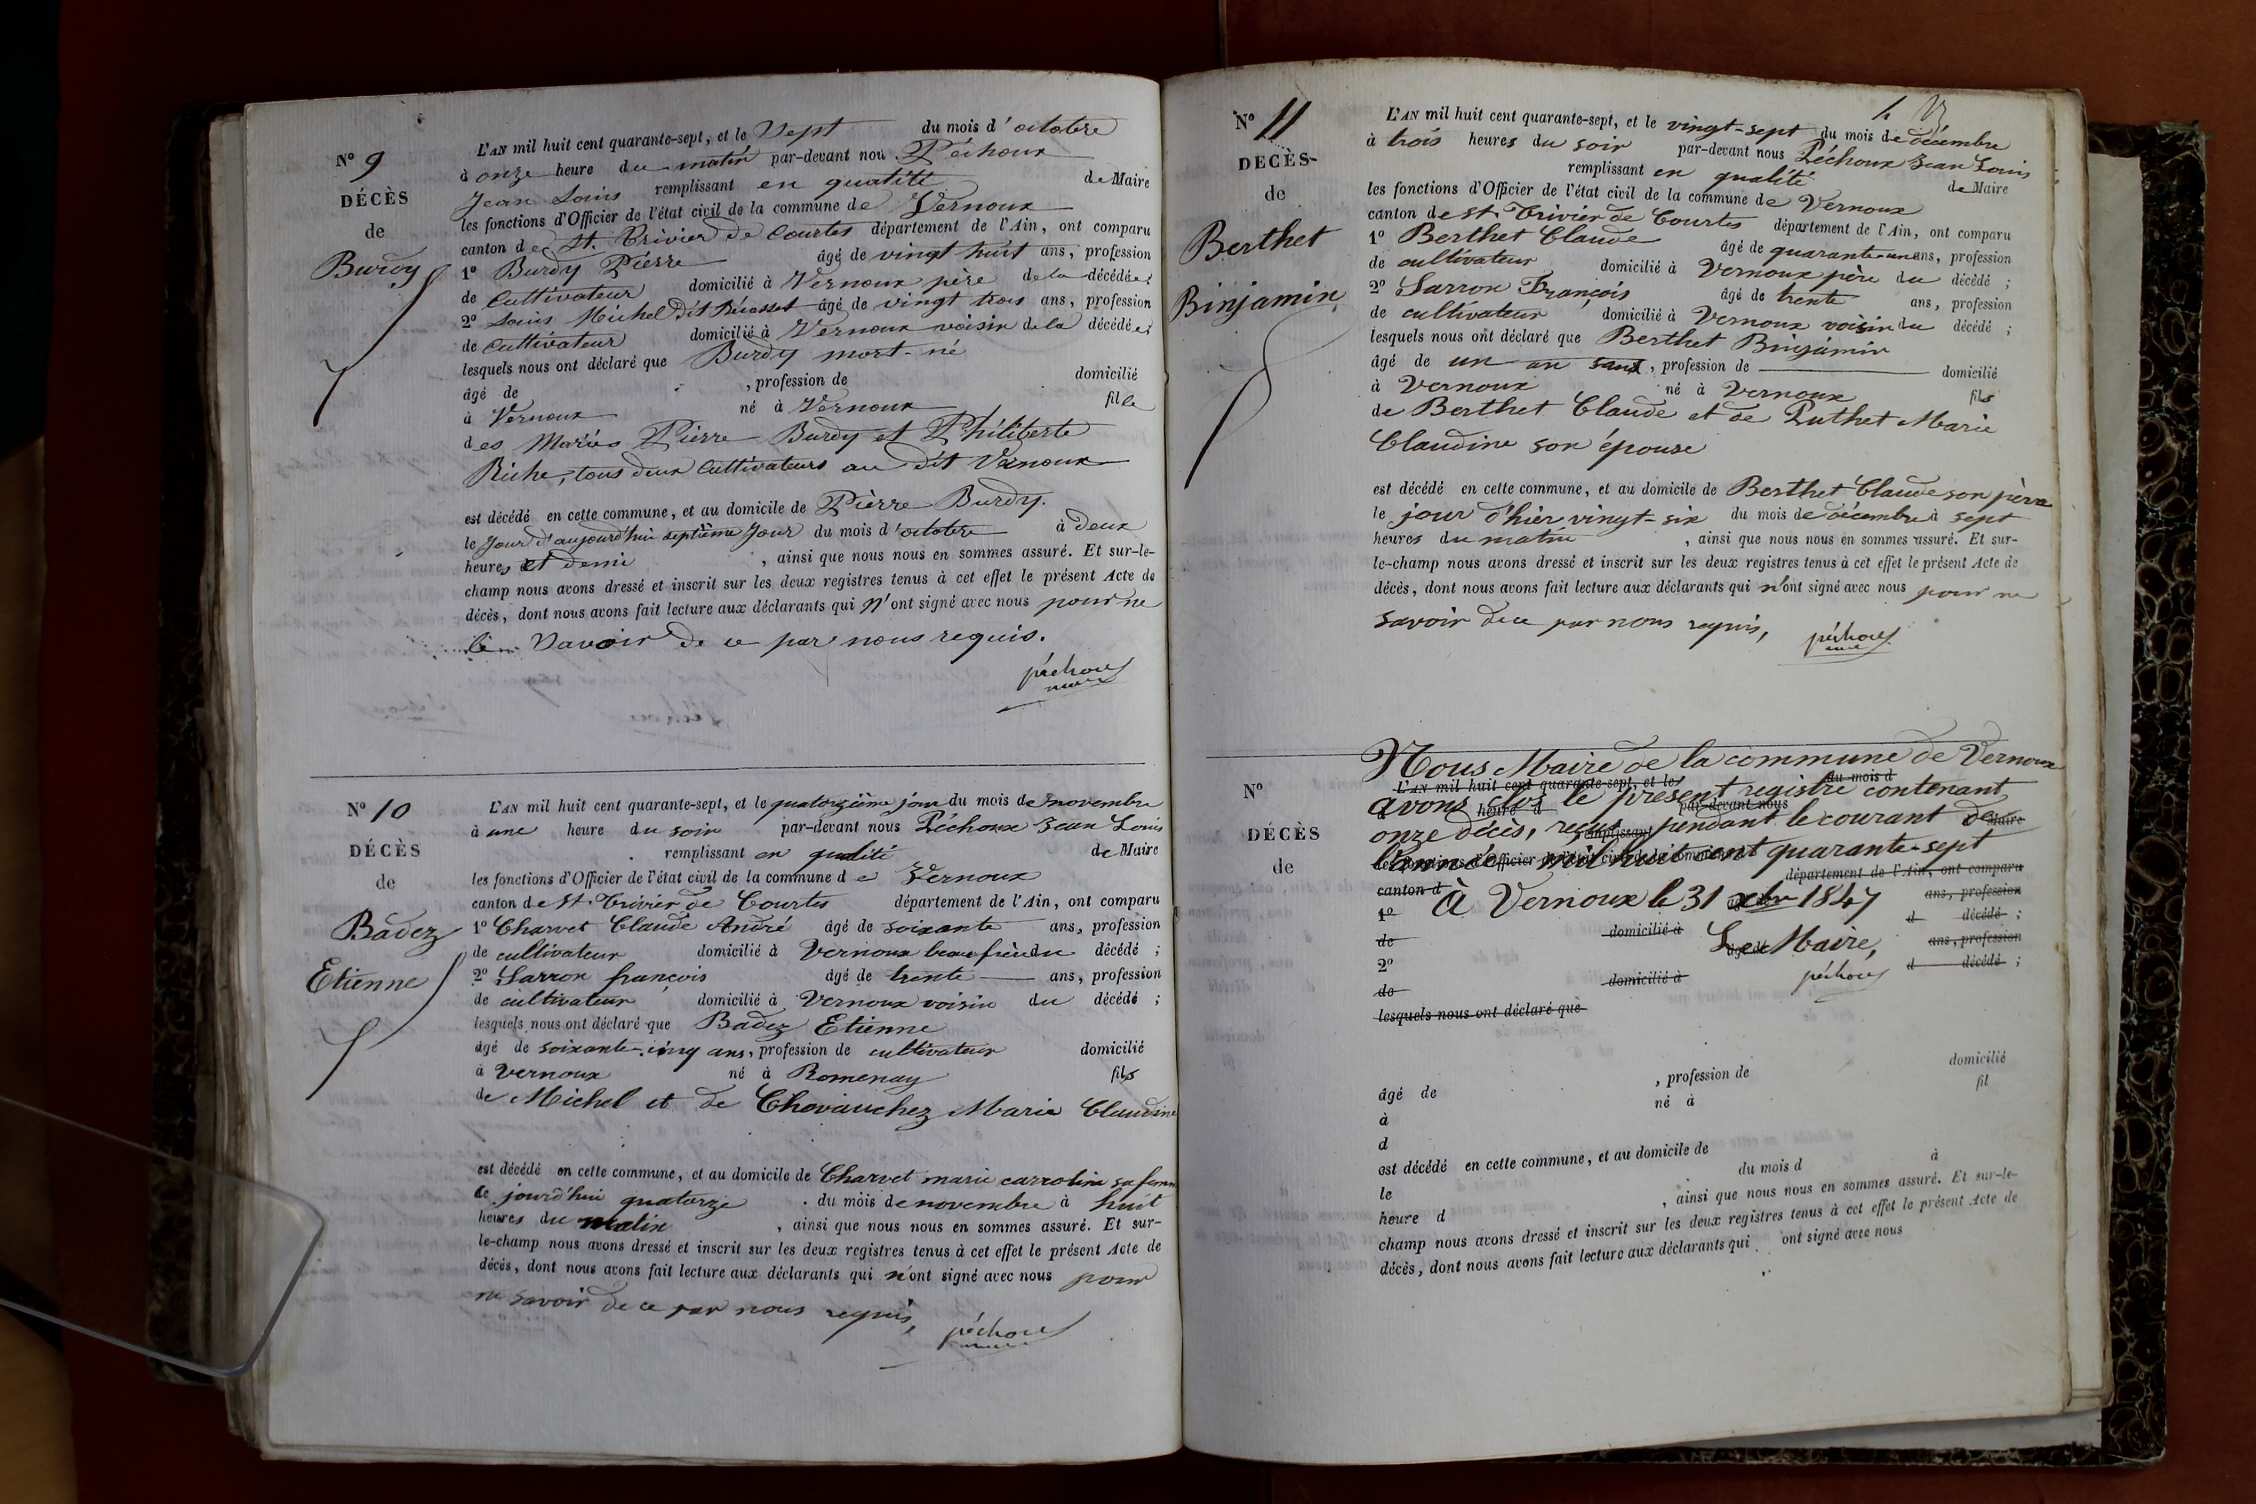 N° 9
DÉCÈS
de
Burdy
L'AN mil huit cent quarante-sept, et le Sept du mois d'octobre
à onze heure du matin par-devant nou Péchoux
Jean Louis remplissant en qualité de Maire
les fonctions d'Officier de l'état civil de la commune de Vernoux
canton de St. Trivier de Courtes département de l'Ain, ont comparu
1° Burdy Pierre âgé de vingt huit ans, profession
de Cultivateur domicilié à Vernoux père de la décédée;
2° Louis Michel dit âgé de vingt trois ans, profession
de Cultivateur domicilié à Vernoux voisin de la décédée;
lesquels nous ont déclaré que Burdy mort-né
âgé de , profession de domicilié
à Vernoux né à Vernoux fille
des Mariés Pierre Burdy et Philiberte
Riche, tous deux Cultivateurs au dit Vernoux
est décédé en cette commune, et au domicile de Pierre Burdy.
le Jour d'aujourd'hui septième Jour du mois d'octobre à deux
heures et demi , ainsi que nous nous en sommes assuré. Et sur-le-
champ nous avons dressé et inscrit sur les deux registres tenus à cet effet le présent Acte de
décès, dont nous avons fait lecture aux déclarants qui n'ont signé avec nous pour ne
le Savoir de ce par nous requis.
péchoux
maire
N° 10
DÉCÈS
de
Badez
Etienne
L'AN mil huit cent quarante-sept, et le quatorzième jour du mois de novembre
à une heure du soir par-devant nous Péchoux Jean Louis
remplissant en qualité de Maire
les fonctions d'Officier de l'état civil de la commune de Vernoux
canton de St. Trivier de Courtes département de l'Ain, ont comparu
1° Charvet Claude André âgé de soixante ans, profession
de cultivateur domicilié à Vernoux beau frère du décédé;
2° Sarron françois âgé de trente ans, profession
de cultivateur domicilié à Vernoux voisin du décédé;
lesquels nous ont déclaré que Badez Etienne
âgé de soixante-cinq ans, profession de cultivateur domicilié
à Vernoux né à Romenay fils
de Michel et de Chevauchez Marie Claudine
est décédé en cette commune, et au domicile de Charvet marie carroline sa femme
le jourd'hui quatorze du mois de novembre à huit
heures du matin , ainsi que nous nous en sommes assuré. Et sur-
le-champ nous avons dressé et inscrit sur les deux registres tenus à cet effet le présent Acte de
décès, dont nous avons fait lecture aux déclarants qui n'ont signé avec nous pour
ne savoir de ce par nous requis,
péchoux
maire
N° 11
DÉCÈS
de
Berthet
Binjamin
L'AN mil huit cent quarante-sept, et le vingt-sept du mois de décembre
à trois heures du soir par-devant nous Péchoux Jean Louis
remplissant en qualité de Maire
les fonctions d'Officier de l'état civil de la commune de Vernoux
canton de St. Trivier de Courtes département de l'Ain, ont comparu
1° Berthet Claude âgé de quarante un ans, profession
de cultivateur domicilié à Vernoux père du décédé;
2° Sarron François âgé de trente ans, profession
de cultivateur domicilié à Vernoux voisin du décédé;
lesquels nous ont déclaré que Berthet Binjamin
âgé de un an , profession de domicilié
à Vernoux né à Vernoux fils
de Berthet Claude et de Puthet Marie
Claudine son épouse
est décédé en cette commune, et au domicile de Berthet Claude son père
le jour d'hier vingt-six du mois de décembre à sept
heures du matin , ainsi que nous nous en sommes assuré. Et sur-
le-champ nous avons dressé et inscrit sur les deux registres tenus à cet effet le présent Acte de
décès, dont nous avons fait lecture aux déclarants qui n'ont signé avec nous pour ne
savoir de ce par nous requis,
péchoux
maire
N°
DÉCÈS
de
Nous Maire de la commune de Vernoux
L'AN mil huit cent quarante-sept, et le du mois d
avons clos le présent registre contenant
heure d par-devant nous
onze décès, reçus pendant le courant de
remplissant Maire
l'année mil huit cent quarante-sept
les fonctions d'Officier de l'état civil de la commune d
département de l'Ain, ont comparu
canton d
à Vernoux le 31 xbre 1847
1° ans, profession
de domicilié à d décédé;
Le Maire,
2° âgé de ans, profession
péchoux
de domicilié à d décédé;
lesquels nous ont déclaré que
âgé de , profession de domicilié
à né à fil
d
est décédé en cette commune, et au domicile de
le du mois d à
heure d , ainsi que nous nous en sommes assuré. Et sur-le-
champ nous avons dressé et inscrit sur les deux registres tenus à cet effet le présent Acte de
décès, dont nous avons fait lecture aux déclarants qui ont signé avec nous